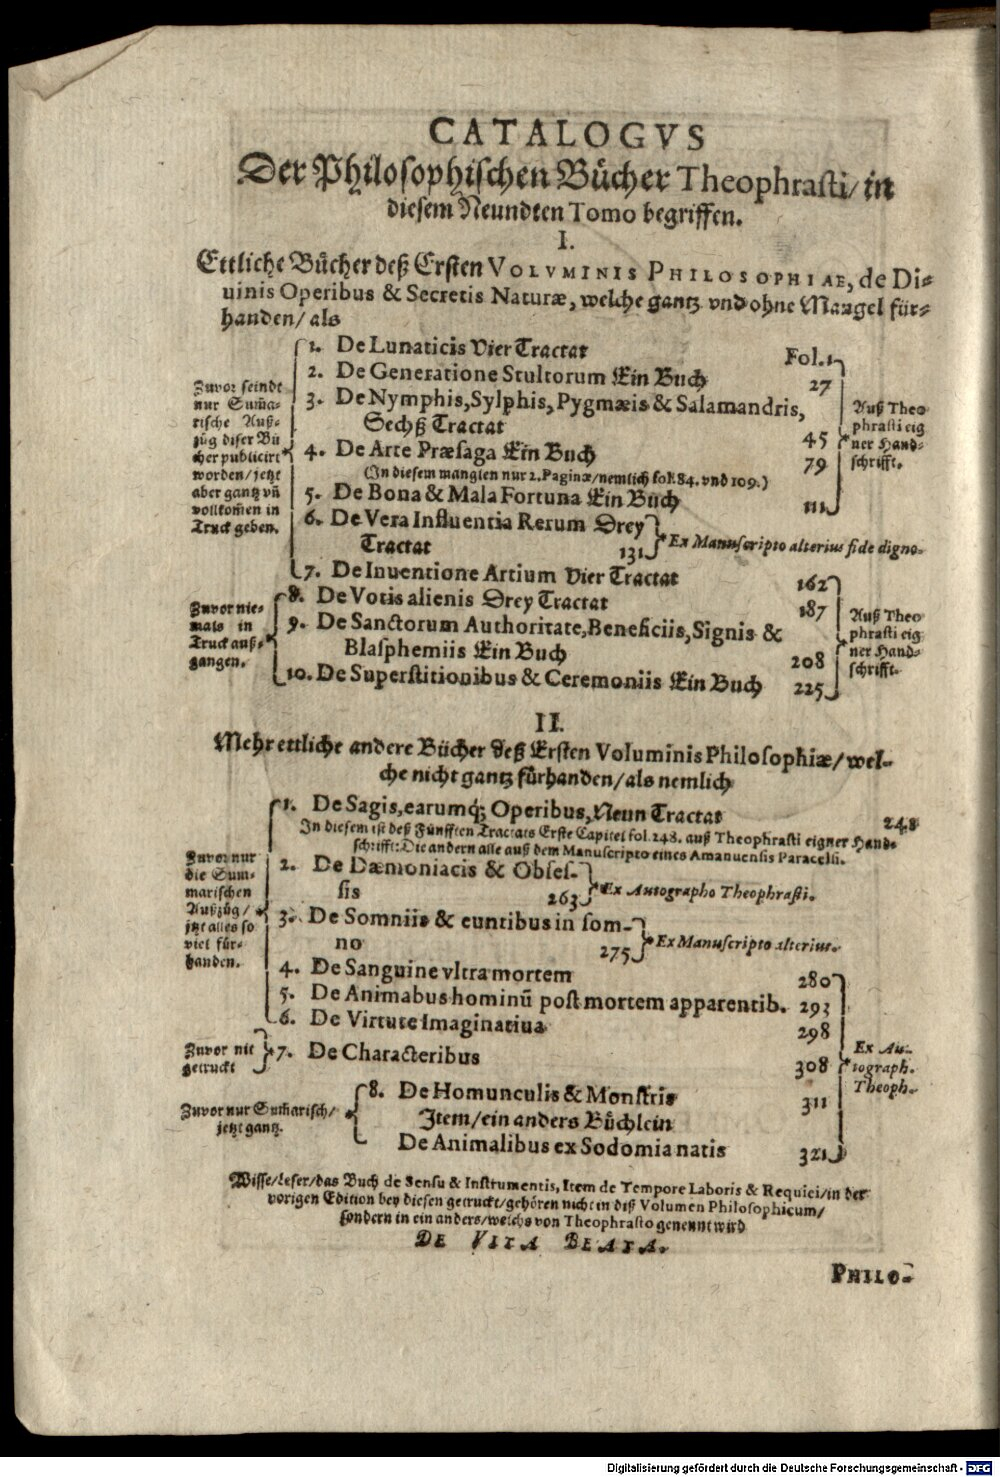 CATALOGVS
Der Philosophischen Bücher Theophrasti/ in
diesem Neundten Tomo begriffen.
I.
Ettliche Bücher deß Ersten VOLVMINIS PHILOSOPHIAE, de Di-
uinis Operibus & Secretis Naturæ, welche gantz vnd ohne Mangel für-
handen/ als
Zuvor seindt
nur Sum̄a-
rische Auß-
züg diser Bü
cher publicirt
worden/ jetzt
aber gantz vn̄
vollkom̄en in
Truck geben.
1. De Lunaticis Vier Tractat Fol. 1
2. De Generatione Stultorum Ein Buch 27
3. De Nymphis, Sylphis, Pygmæis & Salamandris,
Sechß Tractat 45
4. De Arte Præsaga Ein Buch 79
(In diesem manglen nur 2. Paginæ/ nemlich fol. 84. vnd 109.)
5. De Bona & Mala Fortuna Ein Buch 111
Auß Theo
phrasti eig
ner Hand-
schrifft.
6. De Vera Influentia Rerum Drey
Tractat 131 Ex Manuscripto alterius fide digno.
7. De Inuentione Artium Vier Tractat 162
Zuvor nie-
mals in
Truck auß-
gangen.
8. De Votis alienis Drey Tractat 187
9. De Sanctorum Authoritate, Beneficiis, Signis &
Blasphemiis Ein Buch 208
10. De Superstitionibus & Ceremoniis Ein Buch 225
Auß Theo
phrasti eig
ner Hand-
schrifft.
II.
Mehr ettliche andere Bücher deß Ersten Voluminis Philosophiæ/ wel-
che nicht gantz fürhanden/ als nemlich
1. De Sagis, earumq; Operibus, Neun Tractat 248
In diesem ist deß Fünfften Tractats Erste Capitel fol. 248. auß Theophrasti eigner Hand-
schrifft: Die andern alle auß dem Manuscripto eines Amanuensis Paracelsi.
Zuvor nur
die Sum-
marischen
Außzüg/
jetzt alles so
viel für-
handen.
2. De Dæmoniacis & Obses-
sis 263 Ex Autographo Theophrasti.
3. De Somniis & euntibus in som-
no 275 Ex Manuscripto alterius.
4. De Sanguine vltra mortem 280
5. De Animabus hominū post mortem apparentib. 293
6. De Virtute Imaginatiua 298
Zuvor nit
getruckt
7. De Characteribus 308
Ex Au-
tograph.
Theoph.
Zuvor nur Sum̄arisch/
jetzt gantz.
8. De Homunculis & Monstris 311
Item/ ein anders Büchlein
De Animalibus ex Sodomia natis 321
Wisse/ Leser/ das Buch de Sensu & Instrumentis, Item de Tempore Laboris & Requiei/ in der
vorigen Edition bey diesen getruckt/ gehören nicht in diß Volumen Philosophicum/
sondern in ein anders/ welchs von Theophrasto genennt wird
DE VITA BEATA.
PHILO-
Digitalisierung gefördert durch die Deutsche Forschungsgemeinschaft - DFG